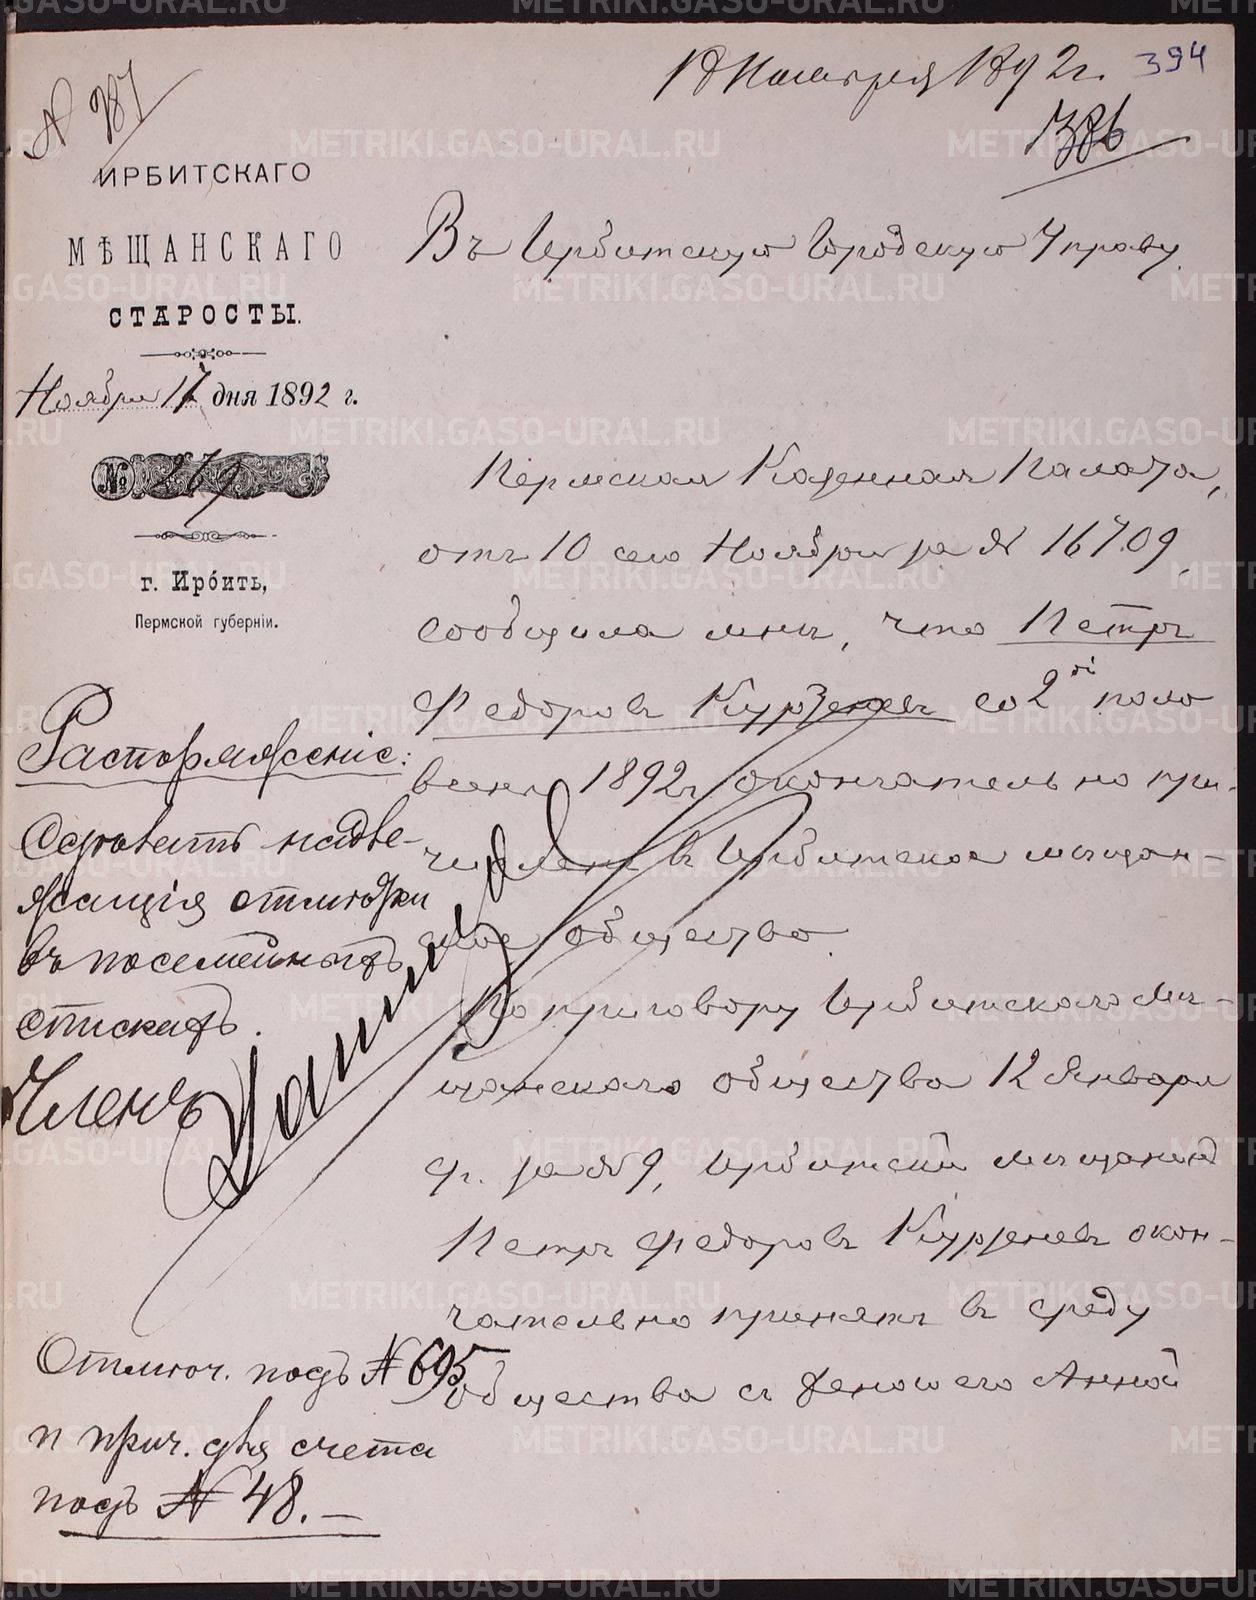 18 Ноября 1892 г. 394
1386
№ 287
ИРБИТСКАГО
МѢЩАНСКАГО
СТАРОСТЫ.
Ноября 17 дня 1892 г.
№ 269
г. Ирбить,
Пермской губерніи.
Въ Ирбитскую Городскую Управу.
Пермская Казенная Палата,
отъ 10 сего Ноября за № 16709,
сообщила мнѣ, что Петръ
Федоровъ Курзеневъ со 2ой поло
вены 1892 г. окончательно при-
численъ въ Ирбитское мѣщан-
ское общество.
По приговору Ирбитскаго мѣ-
щанскаго общества 12 Января
с.г. за № 9, Ирбитскій мѣщанинъ
Петръ Федоровъ Курзеневъ окон-
чательно принятъ въ среду
общества съ женою его Анной
Распоряженіе:
Сдѣлать надле-
жащія отмѣтки
въ посемейныхъ
спискахъ.
Членъ
Отмѣч. подъ № 695
и прич. для счета
подъ № 48. —
METRIKI.GASO-URAL.RU